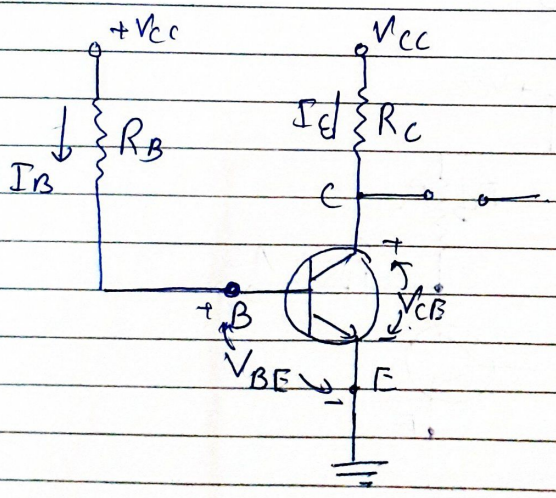 +VCC
VCC
IB
RB
IC
RC
C
+
+ B
VCB
-
VBE
-
E